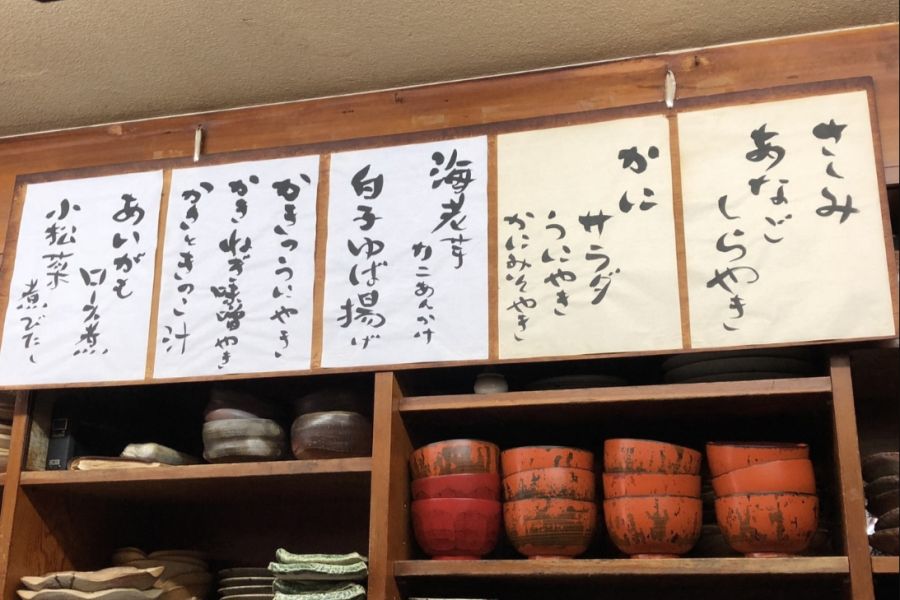 さしみ
あなご
しらやき
かに
サラダ
うにやき
かにみそやき
海老芋
カニあんかけ
白子ゆば揚げ
かきのうにやき
かきねぎ味噌やき
かきときのこ汁
あいがも
ロース煮
小松菜
煮びたし